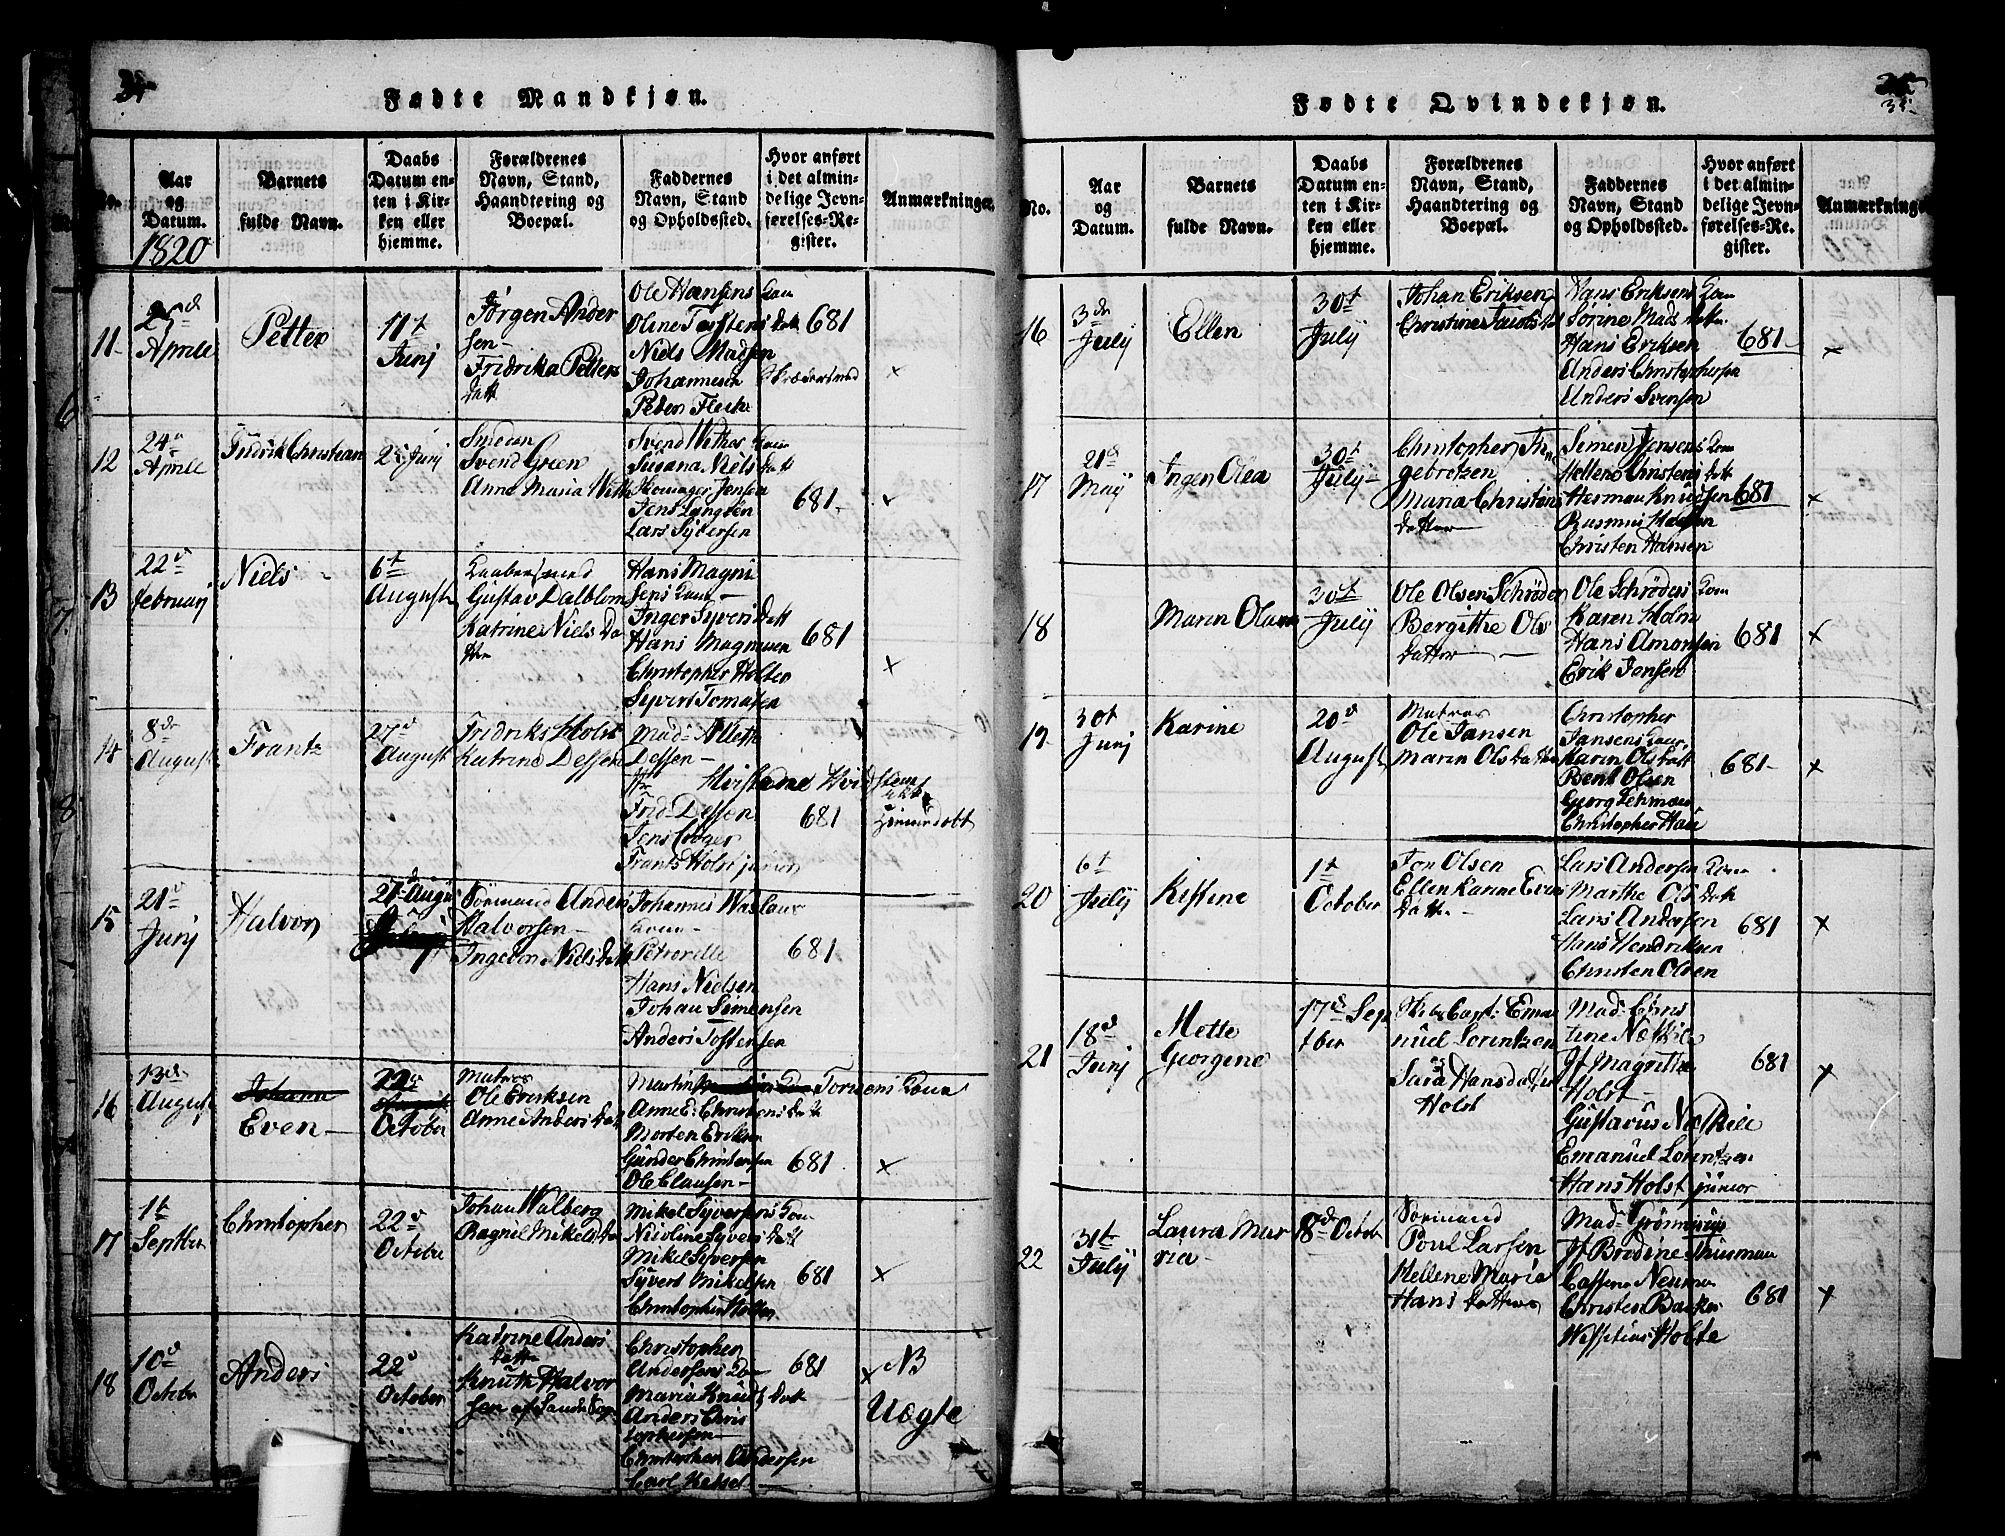 34
Fødte Mandkjøn.
No.
Aar og Datum.
Barnets fulde Navn.
Daabs Datum enten i Kirken eller hjemme.
Forældrenes Navn, Stand, Haandtering og Boepæl.
Faddernes Navn, Stand og Opholdssted.
Hvor anført i det almindelige Jevnførelses-Register.
Anmærkninger.
1820
11
25d
Aprile
Petter
11t
Junj
Jørgen Ander
sen
Fridrika Petters
Datt
Ole Hansens Kone
Oline Tostens Datt
Niels Madsen
Johannesen
Peder Fleche
681
×
12
24d
Aprile
Fridrik Christian
25 Junj
Smeden
Svend Green
Anne Maria
Susana Niels Datt
Jens Jensen
Lars Syversen
681
×
13
22d
februarj
Niels
6t
August
Gustav Dalblom
Katrine Niels Da
tter
Hans Magni
Kone
Inger Syveri Datt
Hans Magnusen
Christopher Holter
Syvert Tomasen
681
×
14
8de
August
Frantz
27d
August
Fridriks Holst
Katrine Dessen
Mad: Allette
Dessen
Frid: Dessen
Jens Crøger
Frants Holst junior
681
15
21d
Junj
Halvor
27d Augu
Sørmand Anders
Halvorsen
Ingebor Niels Datt
Johannes Waslaur
kone
Petronelle
Hans Nielsen
Johan Simensen
Anders Tostensen
681
16
13de
August
Johann
Even
22d
October
Matros
Ole Eriksen
Anne Anders Datt
Martin Tornsens Kone
Anne E: Christens Datt
Morten Eriksen
Gunder Christensen
Ole Clausen
681
×
17
1t
Septber
Christopher
22d
Octobre
Johan Walberg
Ragnil Mikels Dat
Mikel Syversens Kone
Nicoline Syvers Datt
Mikel Syversen
Syvert Mikelsen
Christopher Holter
681
×
18
10d
Octobr
Anders
22d
October
Katrine Anders
datt
Knuth Halvor
sen
Christopher
Andersens Ko
Maria Knuds Datt
Anders Chris
tophersen
Christopher Andersen
Carl
681
× NB
Uægte
35
Fødte Qvindekjøn.
No.
Aar og Datum.
Barnets fulde Navn.
Daabs Datum enten i Kirken eller hjemme.
Forældrenes Navn, Stand, Haandtering og Boepæl.
Faddernes Navn, Stand og Opholdssted.
Hvor anført i det almindelige Jevnførelses-Register.
Anmærkninger
16
3de
Julij
Ellen
30t
Julij
Johan Eriksen
Christine Jacobs dat
Hans Eriksens Kone
Sorine Mads datter
Hans Eriksen
Anders Christophersen
Anders Svensen
681
×
17
21d
Maij
Ingen Olea
30t
Julij
Christopher In
gebrotzen
Maria Christens
Datter
Simen Jensens Kone
Hellene Christens Datt
Herman Knudsen
Rasmus Hansen
Christen Hansen
681
×
18
Maren Olava
30t
Julij
Ole Olsen Schrøder
Bergitthe Ols
datter
Ole Schrøders Kone
Karen Holm
Hans Amonsen
Erik Jensen
681
×
19
30t
Junj
Karine
20d
August
Matros
Ole Jansen
Maren Ols Datter
Christopher
Jansens Kone
Karen Ols Datt
Bent Olsen
Georg Lehmann
Christopher Hau
681
×
20
6t
Julij
Kistine
1t
October
Jon Olsen
Ellen Karine Evens
Datter
Lars Andersen Kone
Marthe Ols Datt
Lars Andersen
Hans Hendriksen
Christen Olsen
681
×
21
18d
Junj
Mette
Georgene
17de Sep
tber
Skibs Capt: Ema
nuel Lorentzen
Sara Hansdatter
Holst
Mad: Chris
tine
Jf Magrette
Holst
Gustavus
Emanuel Lorentzen
Hans Holst junior
681
×
22
31t
Julij
Laura Mar
ria
8de October
Sørmand
Poul Larsen
Hellene Maria
Hans datter
Mad:
Jf Brodine Thusman
Christen Backer
Holte
681
×